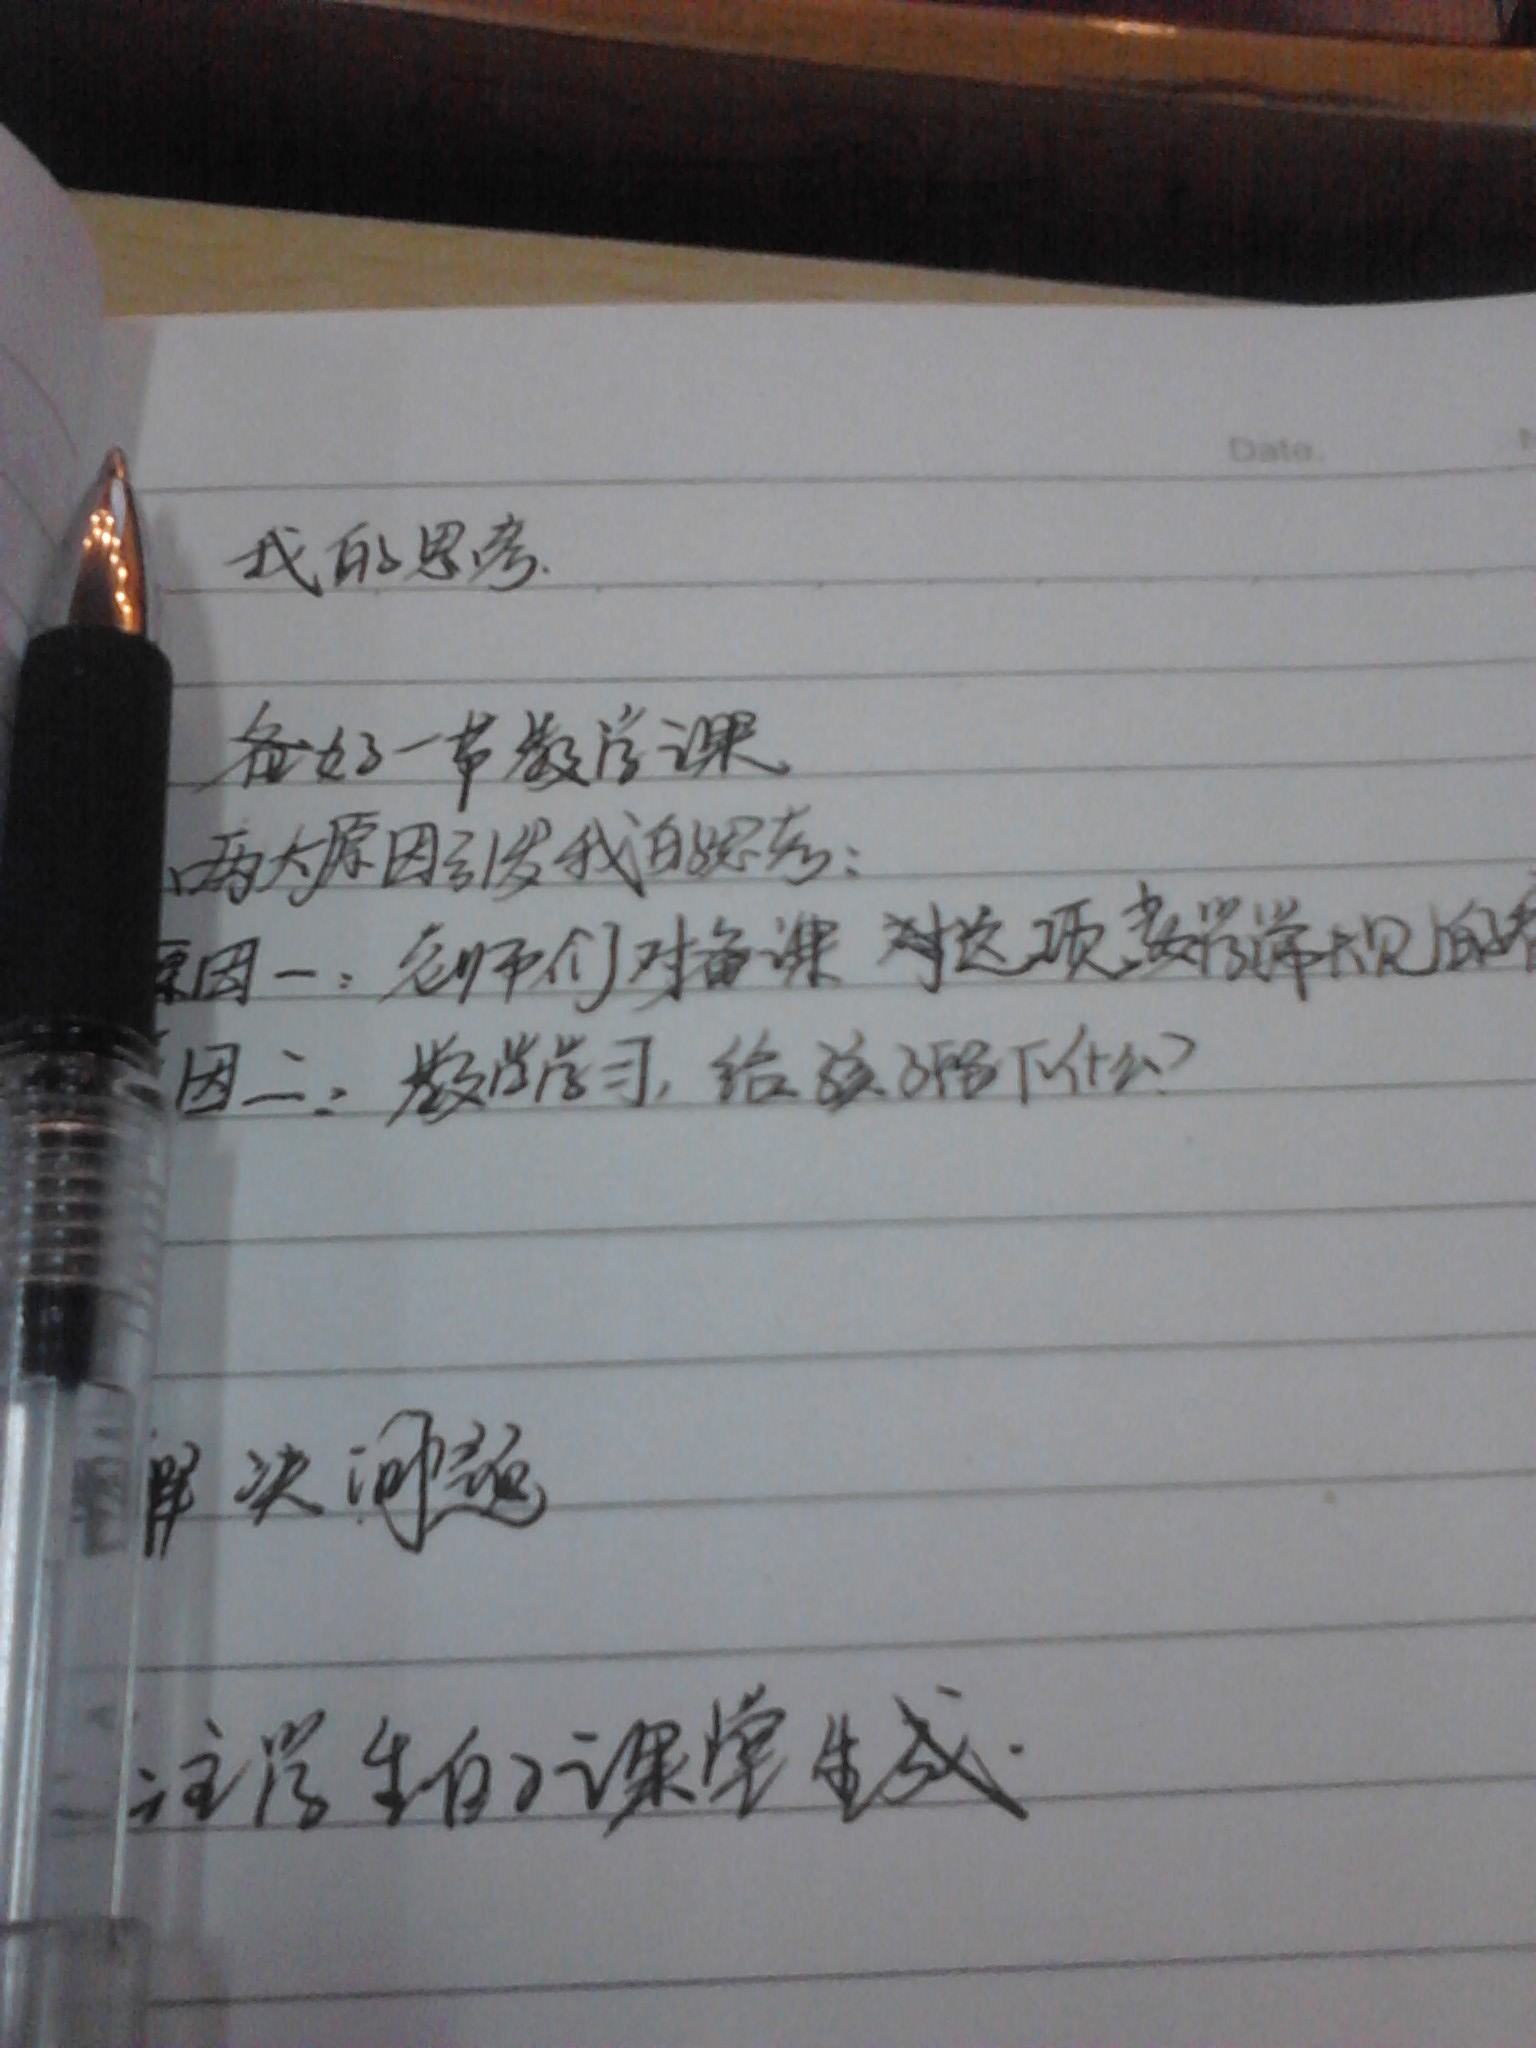 Date.
我的思考.
备好一节数学课
两大原因引发我的思考:
原因一:老师们对备课 对这项教学常规的
因二:数学学习,给孩子留下什么?
解决问题
注学生的课堂生成.